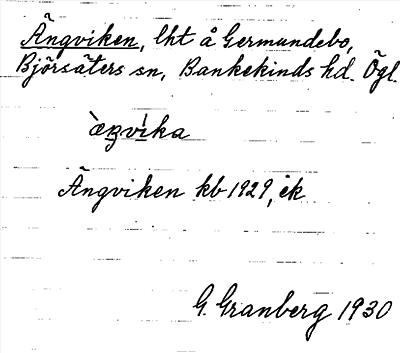 Ängviken, lht å Germundebo,
Björsäters sn, Bankekinds hd. Ögl.
Ängviken kb 1929, ek
G. Granberg 1930